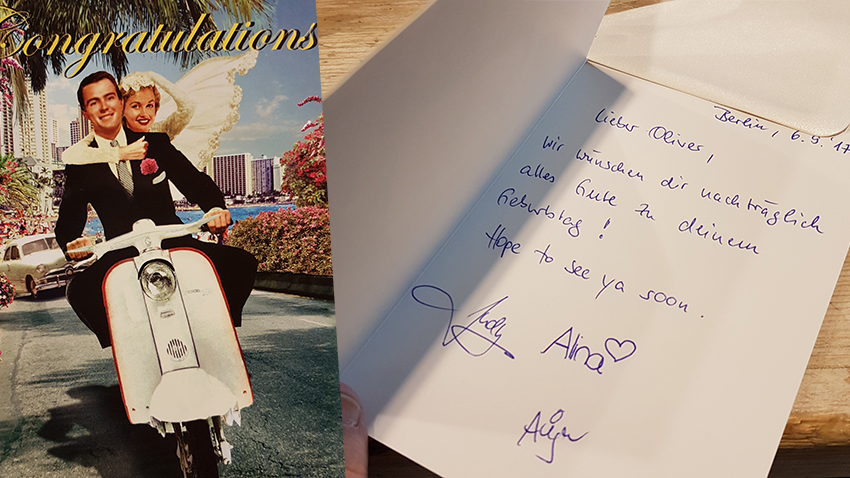 Congratulations
Berlin, 6.9.17
Lieber Oliver,
wir wünschen dir nachträglich
alles Gute zu deinem
Geburtstag!
Hope to see ya soon.
Alina♡